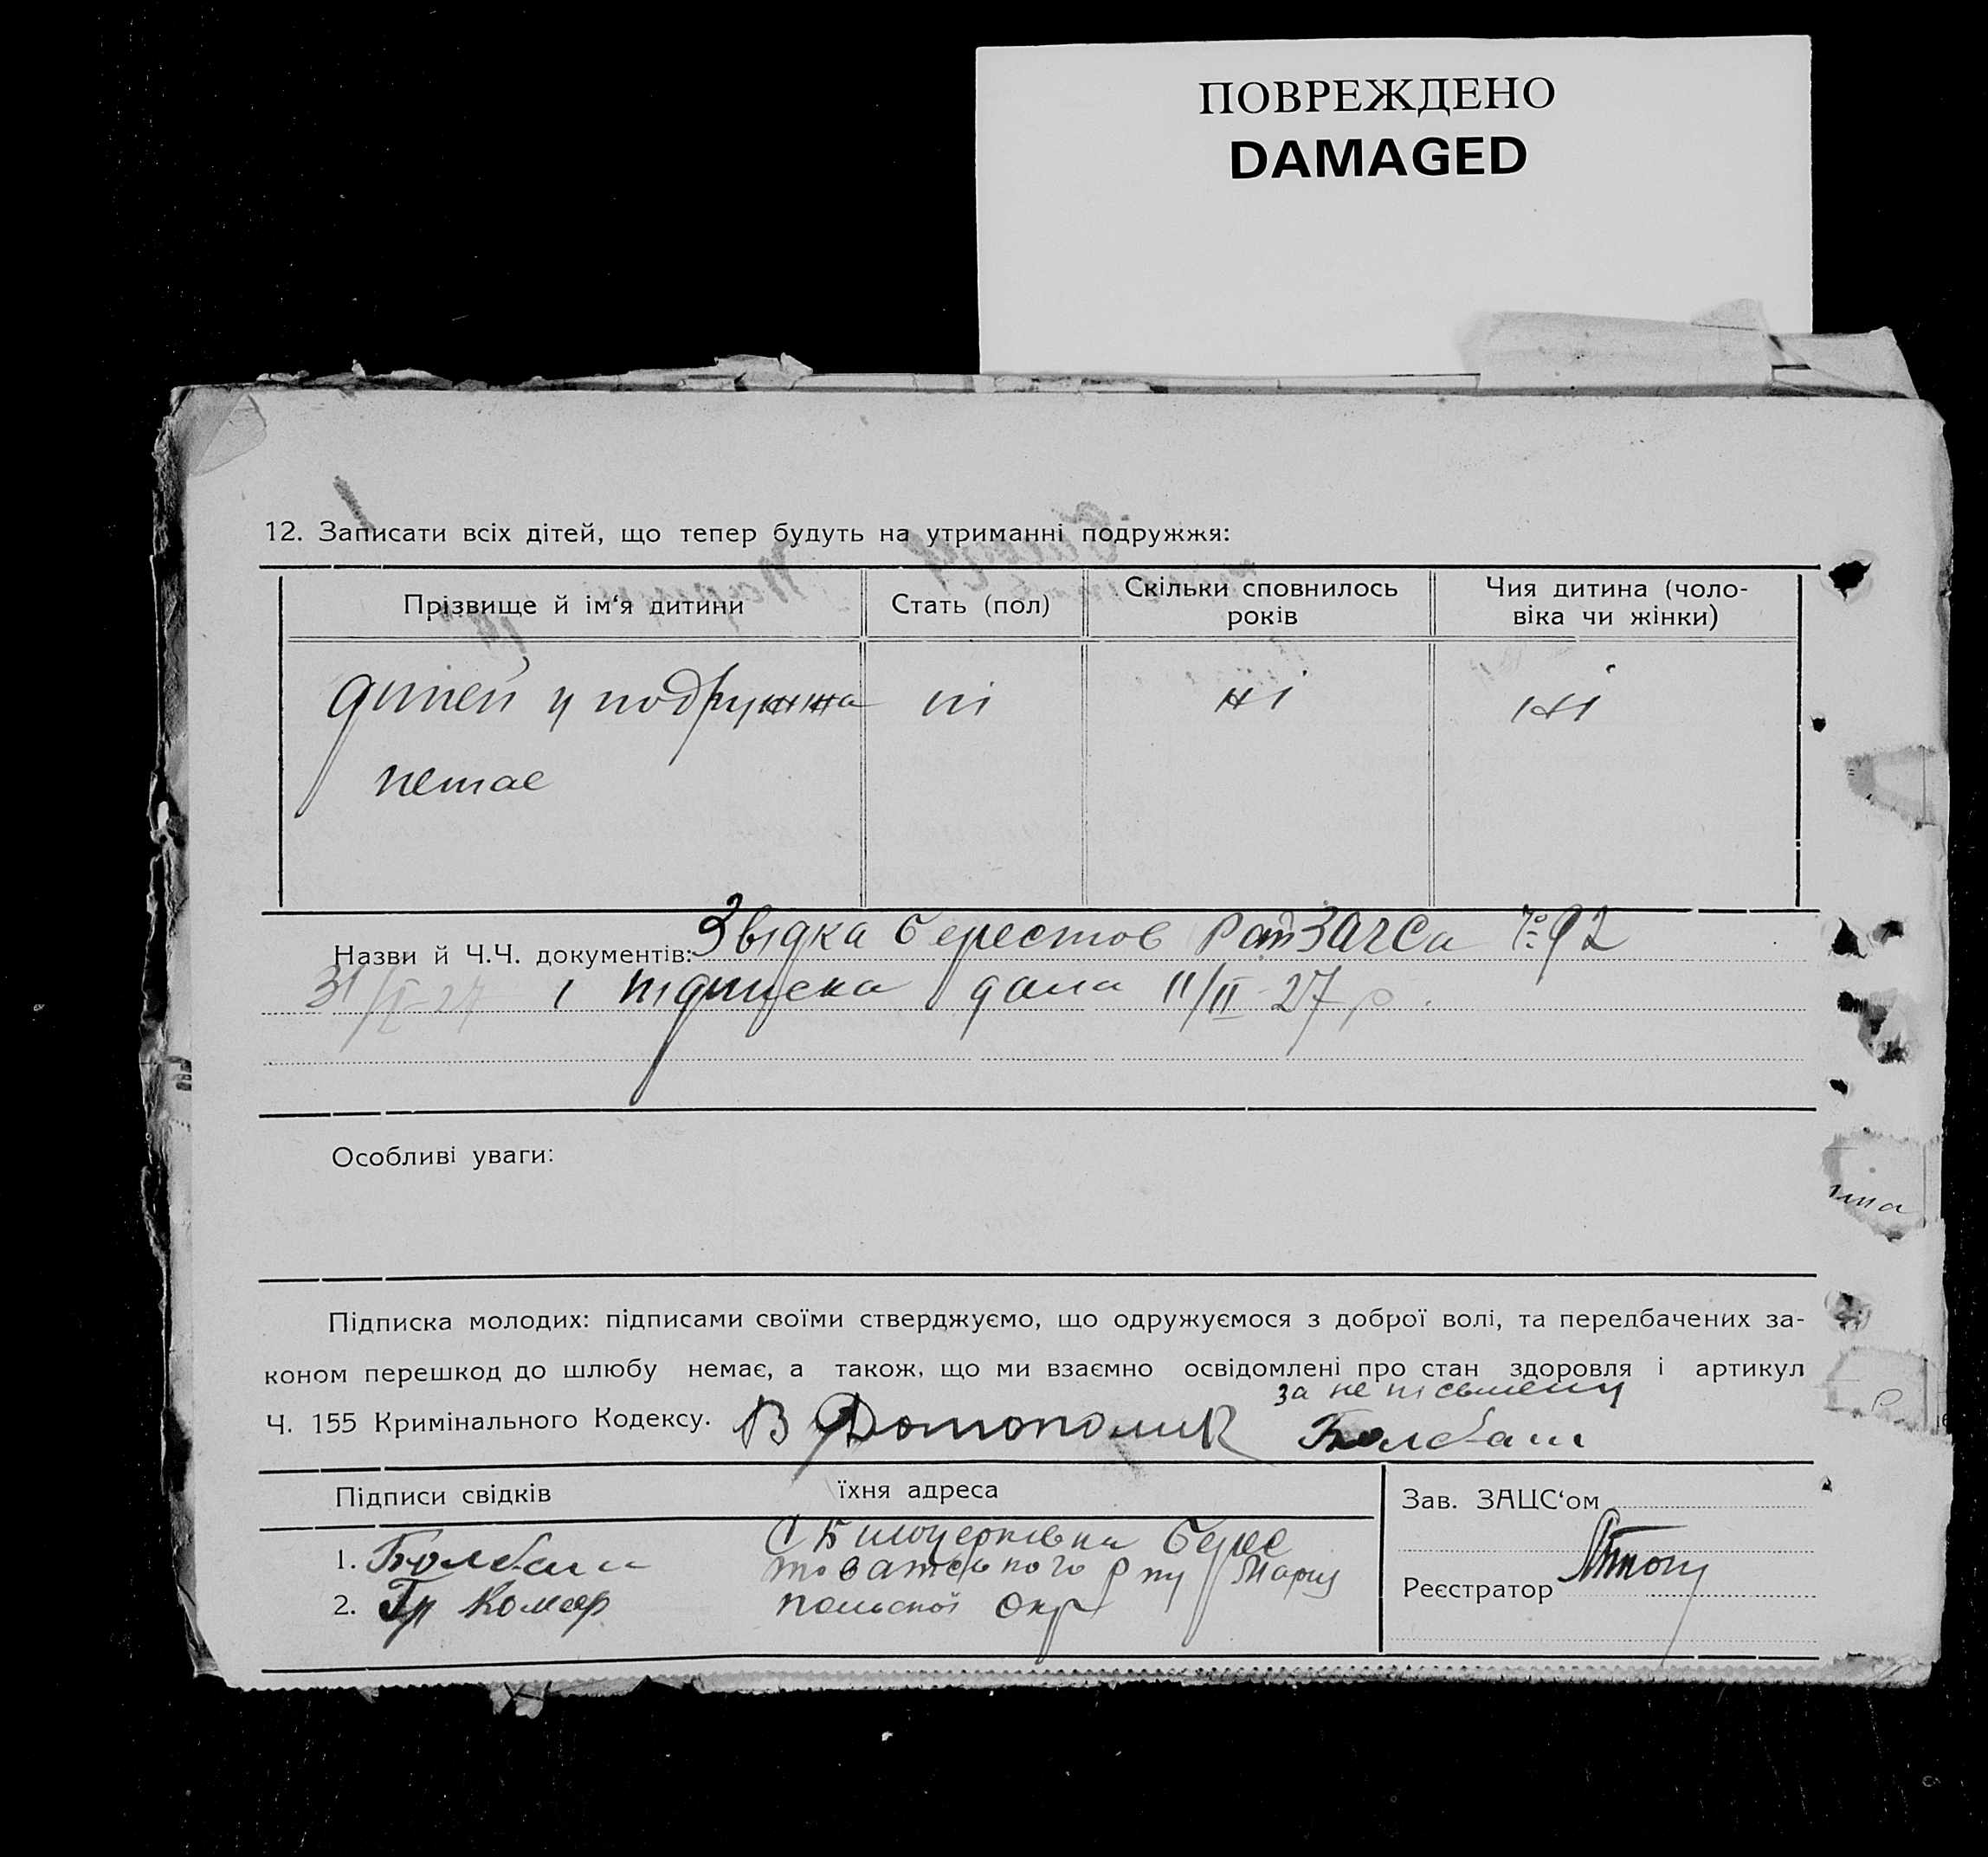 ПОВРЕЖДЕНО
DAMAGED
12. Записати всіх дітей, що тепер будуть на утриманні подружжя:
Прізвище й ім‘я дитини
Стать (пол)
Скільки сповнилось
років
Чия дитина (чоло-
віка чи жінки)
дітей у подружжа ні ні ні
немає
Назви й Ч.Ч. документів: Звідка берестов РайЗАГСа № 92
31/I-27 і підписка дана 11/II 27 р.
Особливі уваги:
Підписка молодих: підписами своїми стверджуємо, що одружуємося з доброї волі, та передбачених за-
коном перешкод до шлюбу немає, а також, що ми взаємно освідомлені про стан здоровля і артикул
за не пісьмену
Ч. 155 Кримінального Кодексу. В Домополик Болбаш
Підписи свідків
їхня адреса
Зав. ЗАЦС‘ом
С Билоцерківка Берес
1. Болбаш
товатського р ну Мариу
Реєстратор
2. Гр Комар
польскої Окр